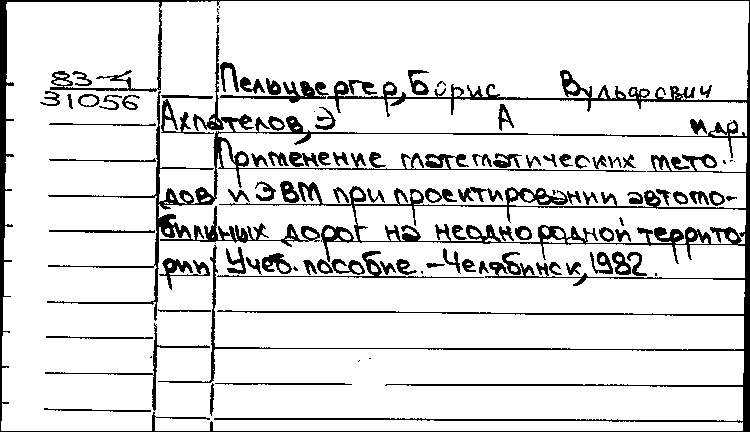 83-4
31056
Пельцвергер, Борис Вульфович
Ахпателов, Э А и др.
Применение математических мето-
дов и ЭВМ при проектировании автомо-
бильных дорог на неоднородной террито-
рии Учеб. пособие. - Челябинск, 1982.